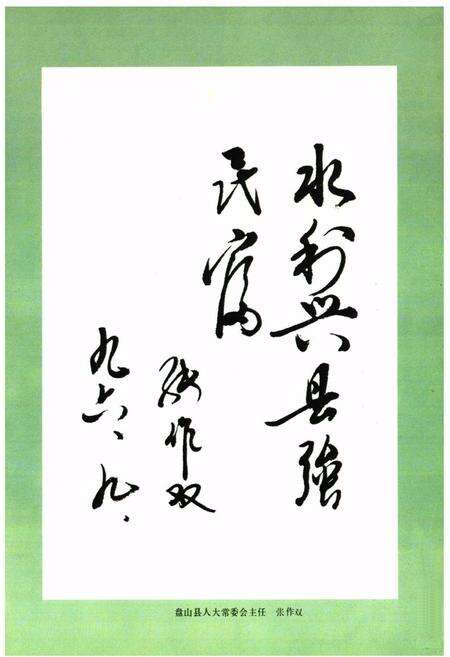 水利兴县強
民富
张作双
九六、九、
盘山县人大常委会主任 张作双